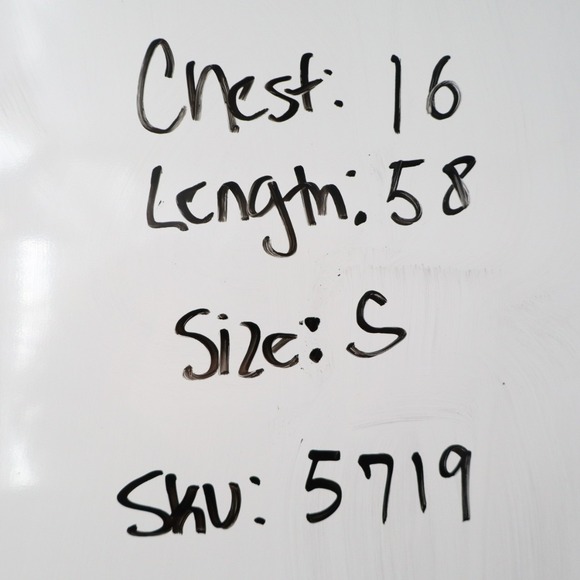 Chest: 16
Length: 58
Size: S
Sku: 5719